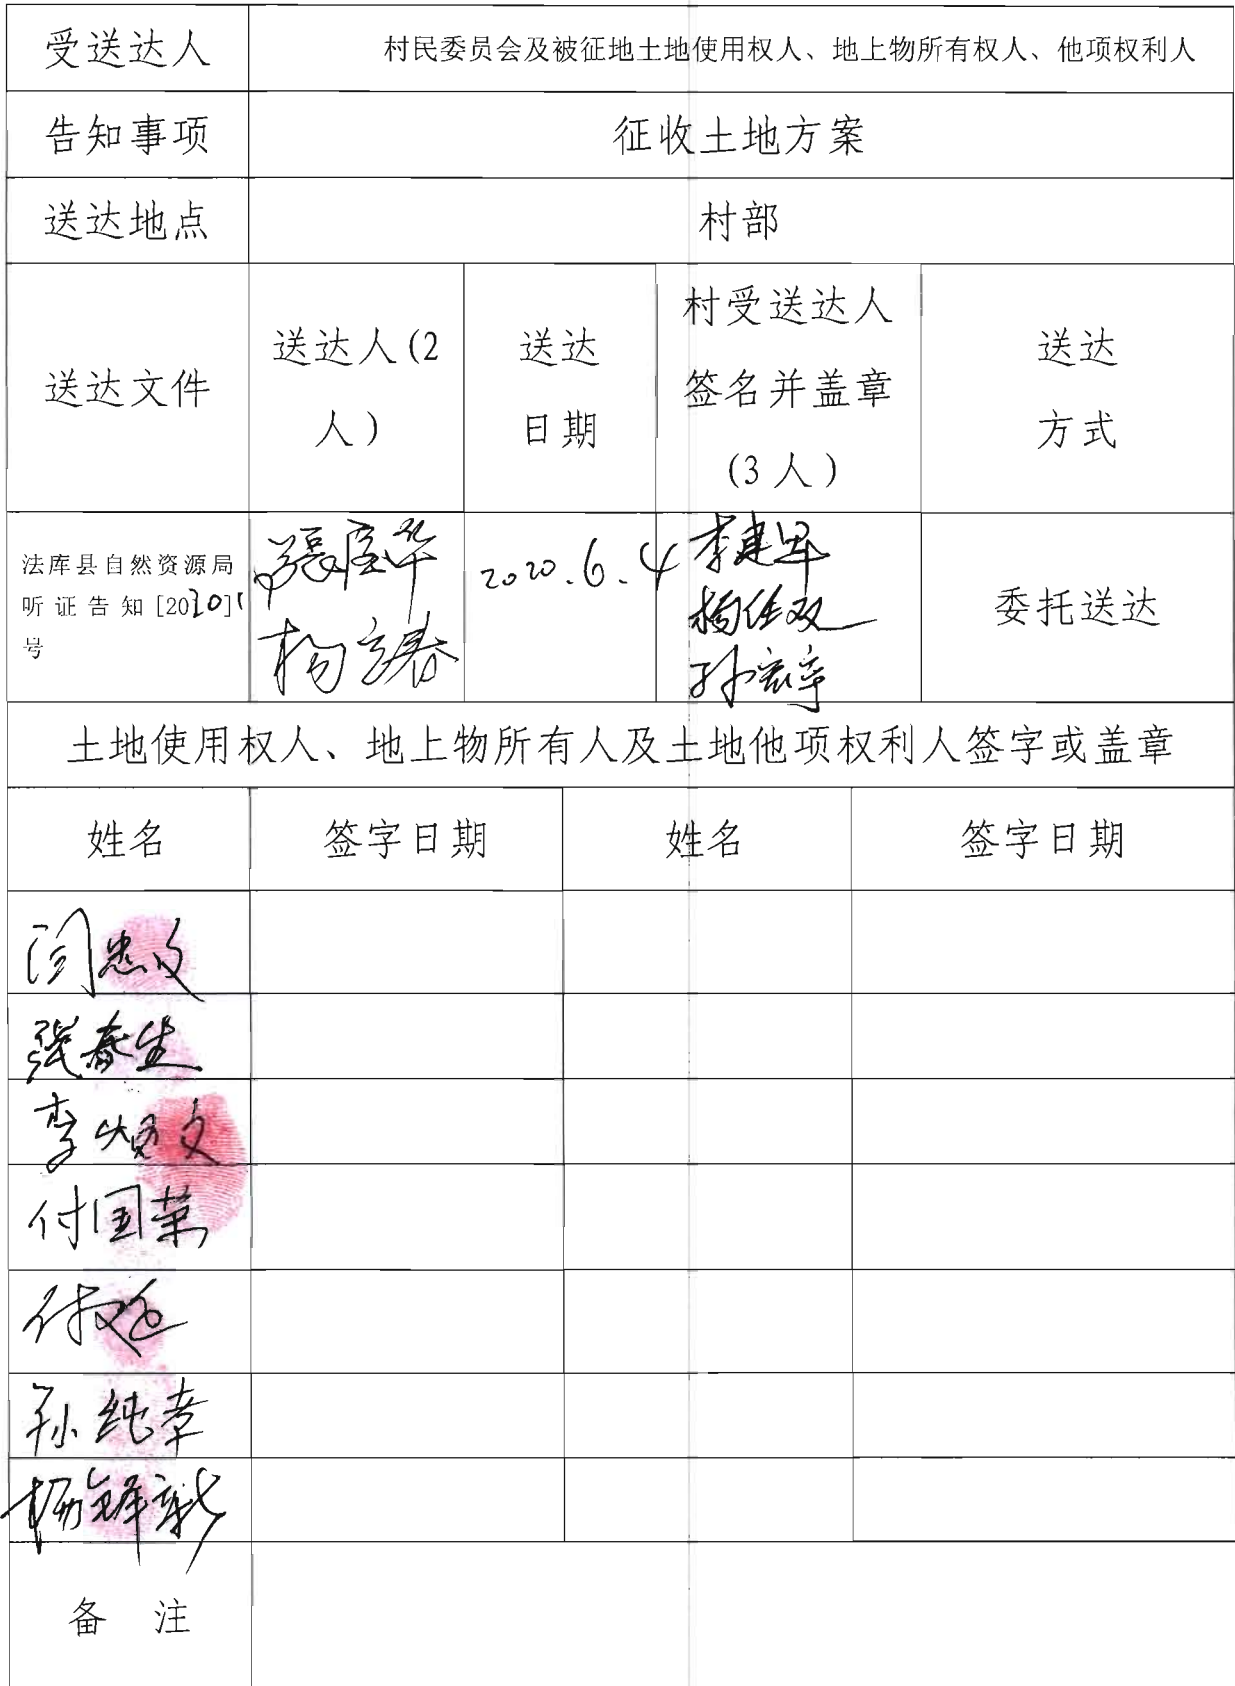 受送达人 村民委员会及被征地土地使用权人、地上物所有权人、他项权利人
告知事项 征收土地方案
送达地点 村部
送达文件
送达人(2
人)
送达
日期
村受送达人
签名并盖章
(3 人)
送达
方式
法库县自然资源局
听证告知[2020]1
号
杨立春
2020.6.4
李建军
委托送达
土地使用权人、地上物所有人及土地他项权利人签字或盖章
姓名 签字日期 姓名 签字日期
闫忠文
张春生
李焕文
付国荣
孙纯章
杨锋新
备 注